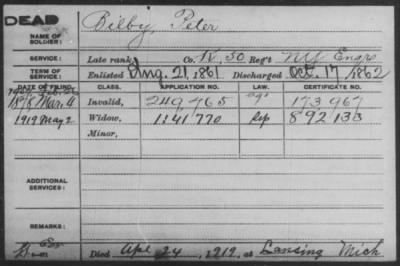 DEAD
NAME OF SOLDIER: Bilby, Peter
SERVICE: Late rank Co. K, 50 Reg't NY Engrs
TERM OF SERVICE: Enlisted Aug. 21, 1861 Discharged Oct. 17, 1862
DATE OF FILING. CLASS. APPLICATION NO. LAW. CERTIFICATE NO.
1878 Mar. 4 Invalid, 249,765 173,967
1919 May 2 Widow, 1141,770 892,133
Minor,
ADDITIONAL SERVICES:
REMARKS:
Died Apr 24, 1919, at Lansing Mich